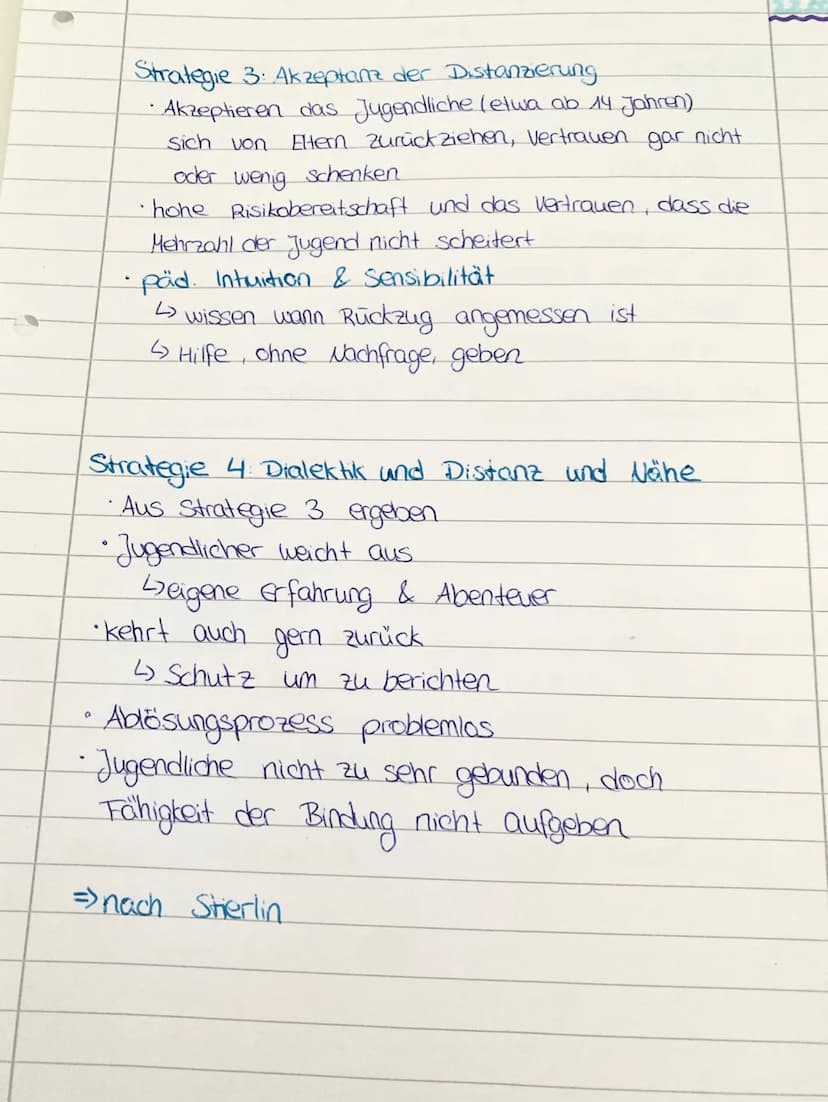 Strategie 3: Akzeptanz der Distanzierung
· Akzeptieren das Jugendliche (etwa ab 14 Jahren)
sich von Eltern zurückziehen, Vertrauen gar nicht
oder wenig schenken
· hohe Risikobereitschaft und das Vertrauen, dass die
Mehrzahl der Jugend nicht scheitert
· päd. Intuition & Sensibilität
↳ wissen wann Rückzug angemessen ist
↳ Hilfe, ohne Nachfrage, geben
Strategie 4: Dialektik und Distanz und Nähe
· Aus Strategie 3 ergeben
· Jugendlicher weicht aus
↳ eigene Erfahrung & Abenteuer
· kehrt auch gern zurück
↳ Schutz um zu berichten
· Ablösungsprozess problemlos
· Jugendliche nicht zu sehr gebunden, doch
Fähigkeit der Bindung nicht aufgeben
⇒ nach Stierlin